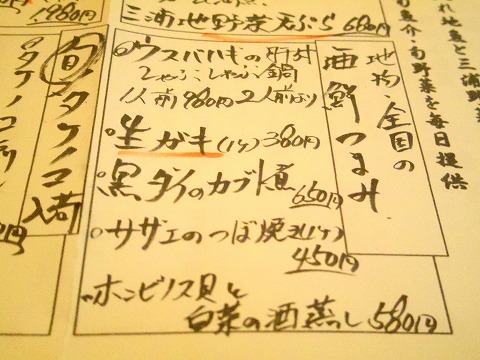 れ地魚と三浦野菜
旬魚介・旬野菜を毎日提供
三浦地野菜天ぷら 680円
地物・全国の
酒鮮つまみ
ウスバハギの肝付
しゃぶしゃぶ鍋
1人前980円 2人前より
生ガキ(1ケ)380円
黒ダイのカブト煮
650円
サザエのつぼ焼き(1ケ)
450円
ホンビノス貝と
白菜の酒蒸し580円
旬タケノコ
入荷
980円
タケノコ